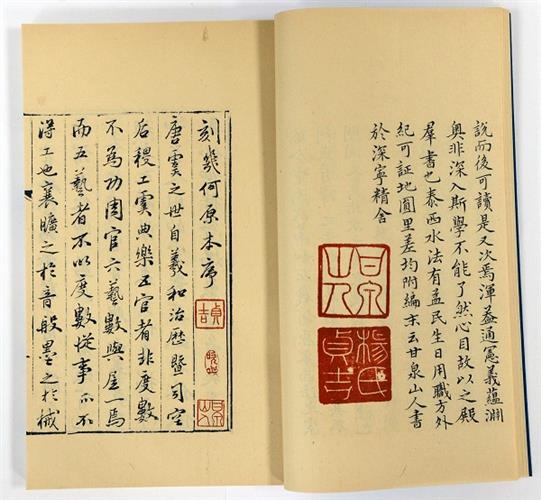 說而後可讀是又次焉渾蓋通憲義蘊淵
奧非深入斯學不能了然心目故以之殿
羣書也泰西水法有益民生日用職方外
紀可証地圓里差均附編末云甘泉山人書
於深寧精舍
刻幾何原本序
唐虞之世自羲和治曆暨司空
后稷工虞典樂五官者非度數
不為功周官六藝數與居一焉
而五藝者不以度數從事亦不
得工也襄曠之於音般墨之於械